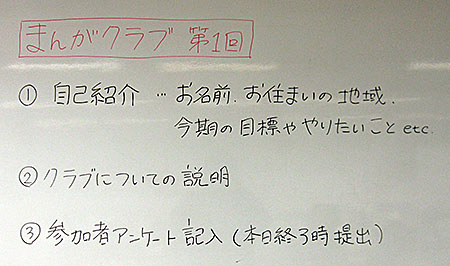 まんがクラブ 第1回
① 自己紹介 … お名前、お住まいの地域、
今期の目標ややりたいこと etc.
② クラブについての説明
③ 参加者アンケート記入 (本日終了時提出)